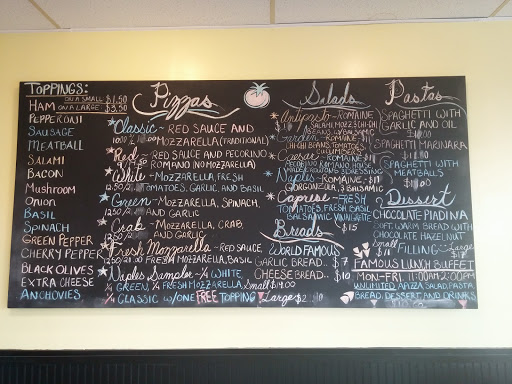 TOPPINGS:
ON A SMALL: $1.50
HAM ON A LARGE: $3.50
PEPPERONI
SAUSAGE
MEATBALL
SALAMI
BACON
MUSHROOM
ONION
BASIL
SPINACH
GREEN PEPPER
CHERRY PEPPER
BLACK OLIVES
EXTRA CHEESE
ANCHOVIES
Pizzas
Classic ~ RED SAUCE AND
MOZZARELLA (TRADITIONAL)
Red ~ RED SAUCE AND PECORINO
ROMANO (NO MOZZARELLA)
White ~ MOZZARELLA, FRESH
TOMATOES, GARLIC, AND BASIL
Green ~ MOZZARELLA, SPINACH,
AND GARLIC
Crab ~ MOZZARELLA, CRAB,
AND GARLIC
Fresh Mozzarella ~ RED SAUCE,
FRESH MOZZARELLA, BASIL
Naples Sampler ~ 1/4 WHITE,
1/4 GREEN, 1/4 FRESH MOZZARELLA, Small $14.00
1/4 CLASSIC w/ONE FREE TOPPING Large $2
Salads
Antipasto ~ ROMAINE
SALAMI, MOZZ
BALSAMIC
Garden ~ ROMAINE
CHI CHI BEANS, TOMATOES
Caesar ~ ROMAINE
DRESSING
Naples ~ ROMAINE
GORGONZOLA, BALSAMIC
Caprese ~ FRESH
TOMATOES, FRESH BASIL
BALSAMIC VINAIGRETTE
$15
Breads
WORLD FAMOUS
GARLIC BREAD.. $7
CHEESE BREAD.. $10
Pastas
SPAGHETTI WITH
GARLIC AND OIL
SPAGHETTI MARINARA
SPAGHETTI WITH
MEATBALLS
Dessert
CHOCOLATE PIADINA
SOFT, WARM BREAD WITH
CHOCOLATE HAZELNUT
Small FILLING Large
FAMOUS LUNCH BUFFET
MON-FRI 11:00AM-2:00PM
UNLIMITED APIZZA, SALAD, PASTA,
BREAD, DESSERT AND DRINKS